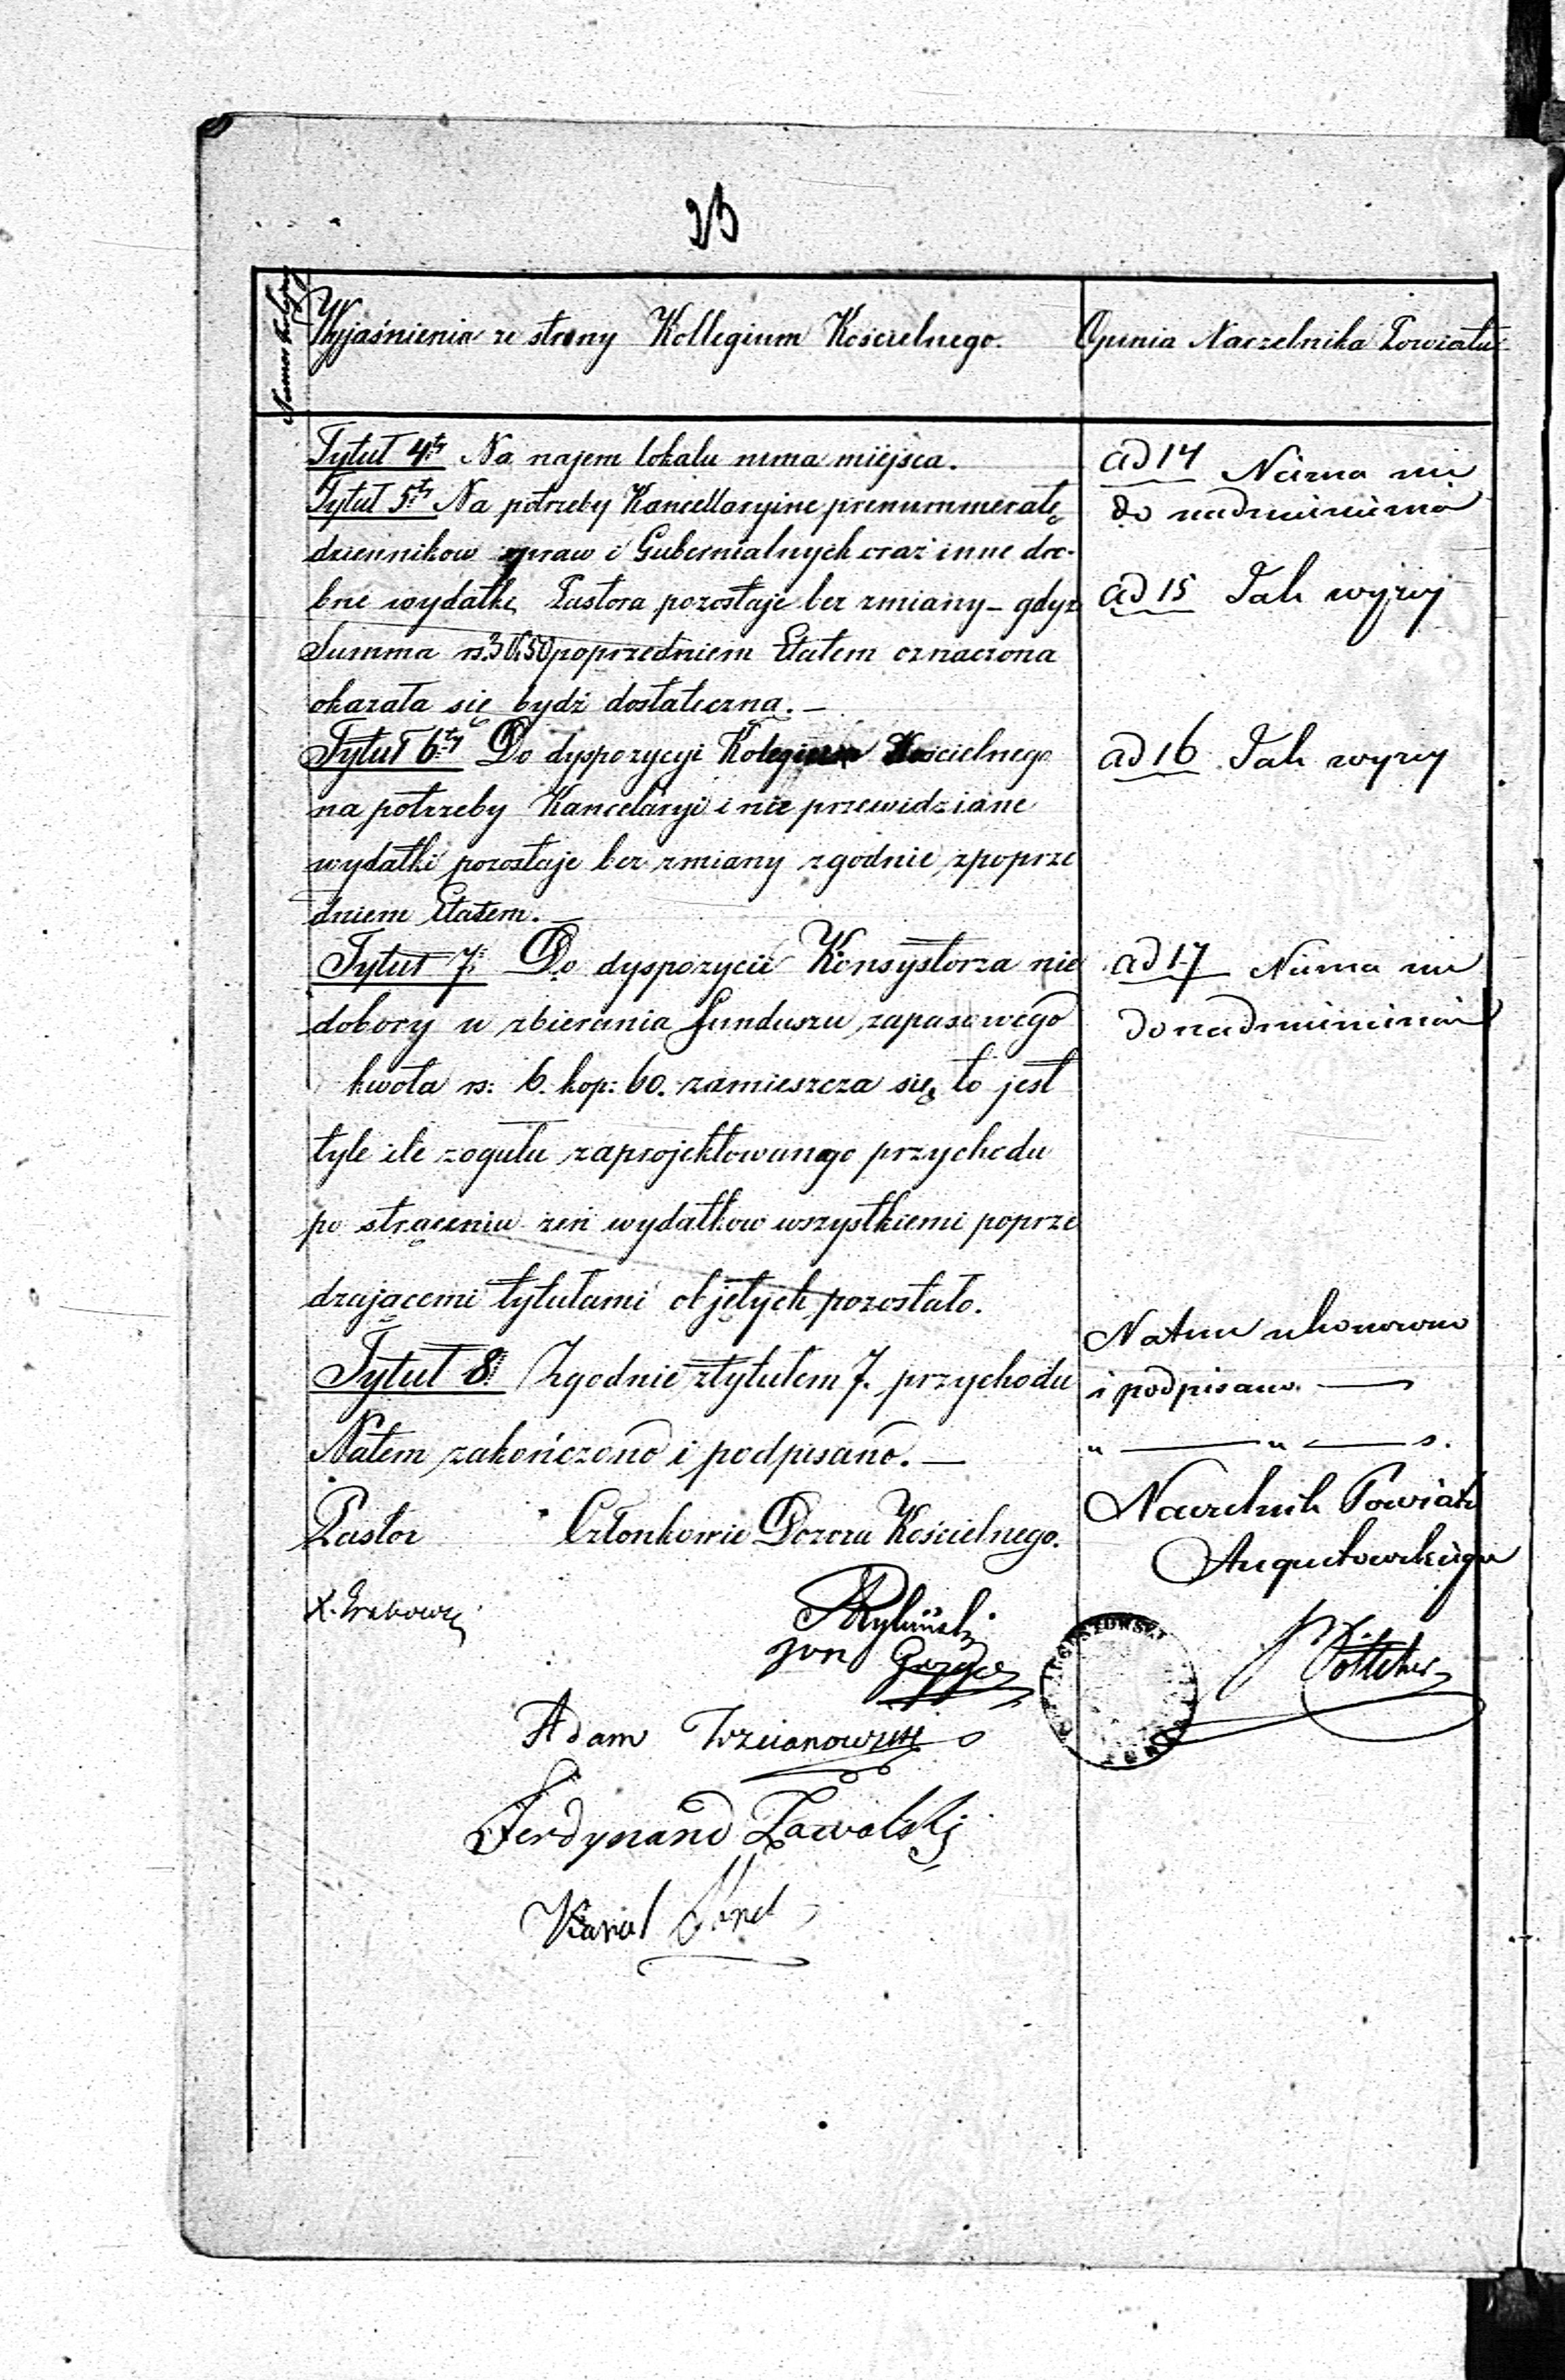 Wyjaśnienia ze strony Kollegium Kościelnego.
Opinia Naczelnika Powiatu
Tytuł 4ty Na najem lokalu nima miejsca.
Tytuł 5ty Na potrzeby Kancellaryine prenummeratę
dziennikow spraw i Gubernialnych oraz inne dro-
bne wydatki Pastora pozostaje bez zmiany – gdyz
Summa rs. 50 poprzedniem Etatem oznaczona
okazała się bydź dostateczną. –
Tytuł 6ty Do dyspozycyi Kolegium Kościelnego
na potrzeby Kancelaryi i nie przewidziane
wydatki pozostaje bez zmiany zgodnie zpoprze
dniem Etatem. –
Tytuł 7. Do dyspozycii Konsystorza nie
dobory u zbierania funduszu zapasowego
kwota rs: 6. kop: 60. zamieszcza się, to jest
tyle ile zogułu zaprojektowanego przychodu
po strąceniu zeń wydatkow wszystkiemi poprze
dzającemi tytułami objętych pozostało.
Tytuł 8. Zgodnie ztytułem 7. przychodu
Natem zakończono i podpisano. –
Pastor Członkowie Dozoru Kościelnego.
Jan
Adam
Ferdynand Zawalski
Karol
ad 14 Niema nic
do nadmienienia
ad 15 Jak wyżej
ad 16 Jak wyżej
ad 17 Niema nic
do nadmienienia
Natem ukonczono
i podpisano. —
Naczelnik Powiatu
Augustowskiego